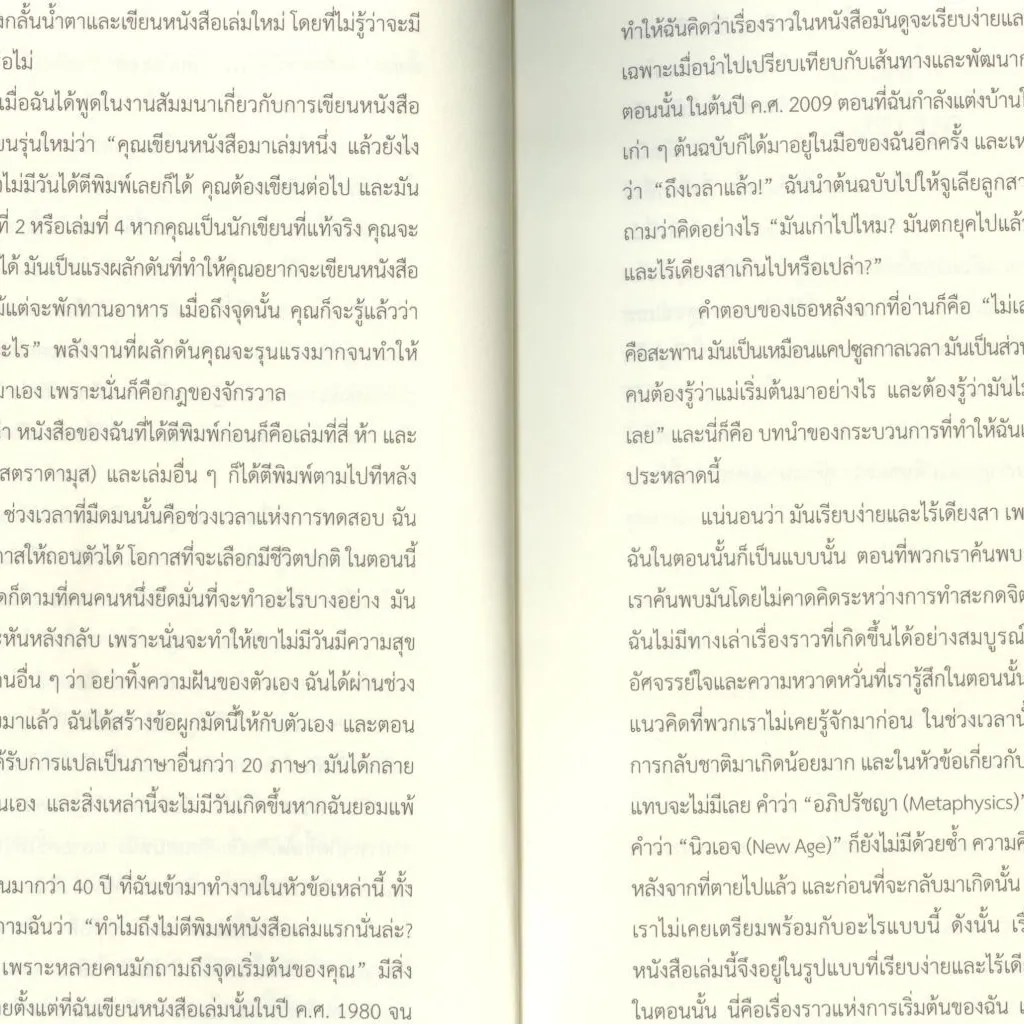 งกลั้นน้ำตาและเขียนหนังสือเล่มใหม่ โดยที่ไม่รู้ว่าจะมี
อไม่
เมื่อฉันได้พูดในงานสัมมนาเกี่ยวกับการเขียนหนังสือ
ยนรุ่นใหม่ว่า “คุณเขียนหนังสือมาเล่มหนึ่ง แล้วยังไง
ไม่มีวันได้ตีพิมพ์เลยก็ได้ คุณต้องเขียนต่อไป และมัน
ที่ 2 หรือเล่มที่ 4 หากคุณเป็นนักเขียนที่แท้จริง คุณจะ
ได้ มันเป็นแรงผลักดันที่ทำให้คุณอยากจะเขียนหนังสือ
ม้แต่จะพักทานอาหาร เมื่อถึงจุดนั้น คุณก็จะรู้แล้วว่า
ะไร” พลังงานที่ผลักดันคุณจะรุนแรงมากจนทำให้
มาเอง เพราะนั่นก็คือกฎของจักรวาล
า หนังสือของฉันที่ได้ตีพิมพ์ก่อนก็คือเล่มที่สี่ ห้า และ
สตราดามุส) และเล่มอื่น ๆ ก็ได้ตีพิมพ์ตามไปทีหลัง
ช่วงเวลาที่มืดมนนั้นคือช่วงเวลาแห่งการทดสอบ ฉัน
าสให้ถอนตัวได้ โอกาสที่จะเลือกมีชีวิตปกติ ในตอนนี้
ดก็ตามที่คนคนหนึ่งยึดมั่นที่จะทำอะไรบางอย่าง มัน
ะหันหลังกลับ เพราะนั่นจะทำให้เขาไม่มีวันมีความสุข
านอื่น ๆ ว่า อย่าทิ้งความฝันของตัวเอง ฉันได้ผ่านช่วง
มาแล้ว ฉันได้สร้างข้อผูกมัดนี้ให้กับตัวเอง และตอน
ด้รับการแปลเป็นภาษาอื่นกว่า 20 ภาษา มันได้กลาย
นเอง และสิ่งเหล่านี้จะไม่มีวันเกิดขึ้นหากฉันยอมแพ้
นมากว่า 40 ปี ที่ฉันเข้ามาทำงานในหัวข้อเหล่านี้ ทั้ง
ถามฉันว่า “ทำไมถึงไม่ตีพิมพ์หนังสือเล่มแรกนั่นล่ะ?
เพราะหลายคนมักถามถึงจุดเริ่มต้นของคุณ” มีสิ่ง
ยตั้งแต่ที่ฉันเขียนหนังสือเล่มนั้นในปี ค.ศ. 1980 จน
ทำให้ฉันคิดว่าเรื่องราวในหนังสือมันดูจะเรียบง่ายแล
เฉพาะเมื่อนำไปเปรียบเทียบกับเส้นทางและพัฒนาก
ตอนนั้น ในต้นปี ค.ศ. 2009 ตอนที่ฉันกำลังแต่งบ้านใ
เก่า ๆ ต้นฉบับก็ได้มาอยู่ในมือของฉันอีกครั้ง และเห
ว่า “ถึงเวลาแล้ว!” ฉันนำต้นฉบับไปให้จูเลียลูกสา
ถามว่าคิดอย่างไร “มันเก่าไปไหม? มันตกยุคไปแล้ว
และไร้เดียงสาเกินไปหรือเปล่า?”
คำตอบของเธอหลังจากที่อ่านก็คือ “ไม่เล
คือสะพาน มันเป็นเหมือนแคปซูลกาลเวลา มันเป็นส่วน
คนต้องรู้ว่าแม่เริ่มต้นมาอย่างไร และต้องรู้ว่ามันไม
เลย” และนี่ก็คือ บทนำของกระบวนการที่ทำให้ฉันเ
ประหลาดนี้
แน่นอนว่า มันเรียบง่ายและไร้เดียงสา เพ
ฉันในตอนนั้นก็เป็นแบบนั้น ตอนที่พวกเราค้นพบ
เราค้นพบมันโดยไม่คาดคิดระหว่างการทำสะกดจิต
ฉันไม่มีทางเล่าเรื่องราวที่เกิดขึ้นได้อย่างสมบูรณ์
อัศจรรย์ใจและความหวาดหวั่นที่เรารู้สึกในตอนนั้น
แนวคิดที่พวกเราไม่เคยรู้จักมาก่อน ในช่วงเวลานั้
การกลับชาติมาเกิดน้อยมาก และในหัวข้อเกี่ยวกับ
แทบจะไม่มีเลย คำว่า “อภิปรัชญา (Metaphysics)”
คำว่า “นิวเอจ (New Age)” ก็ยังไม่มีด้วยซ้ำ ความคิ
หลังจากที่ตายไปแล้ว และก่อนที่จะกลับมาเกิดนั้น
เราไม่เคยเตรียมพร้อมกับอะไรแบบนี้ ดังนั้น เรื
หนังสือเล่มนี้จึงอยู่ในรูปแบบที่เรียบง่ายและไร้เดีย
ในตอนนั้น นี่คือเรื่องราวแห่งการเริ่มต้นของฉัน แ